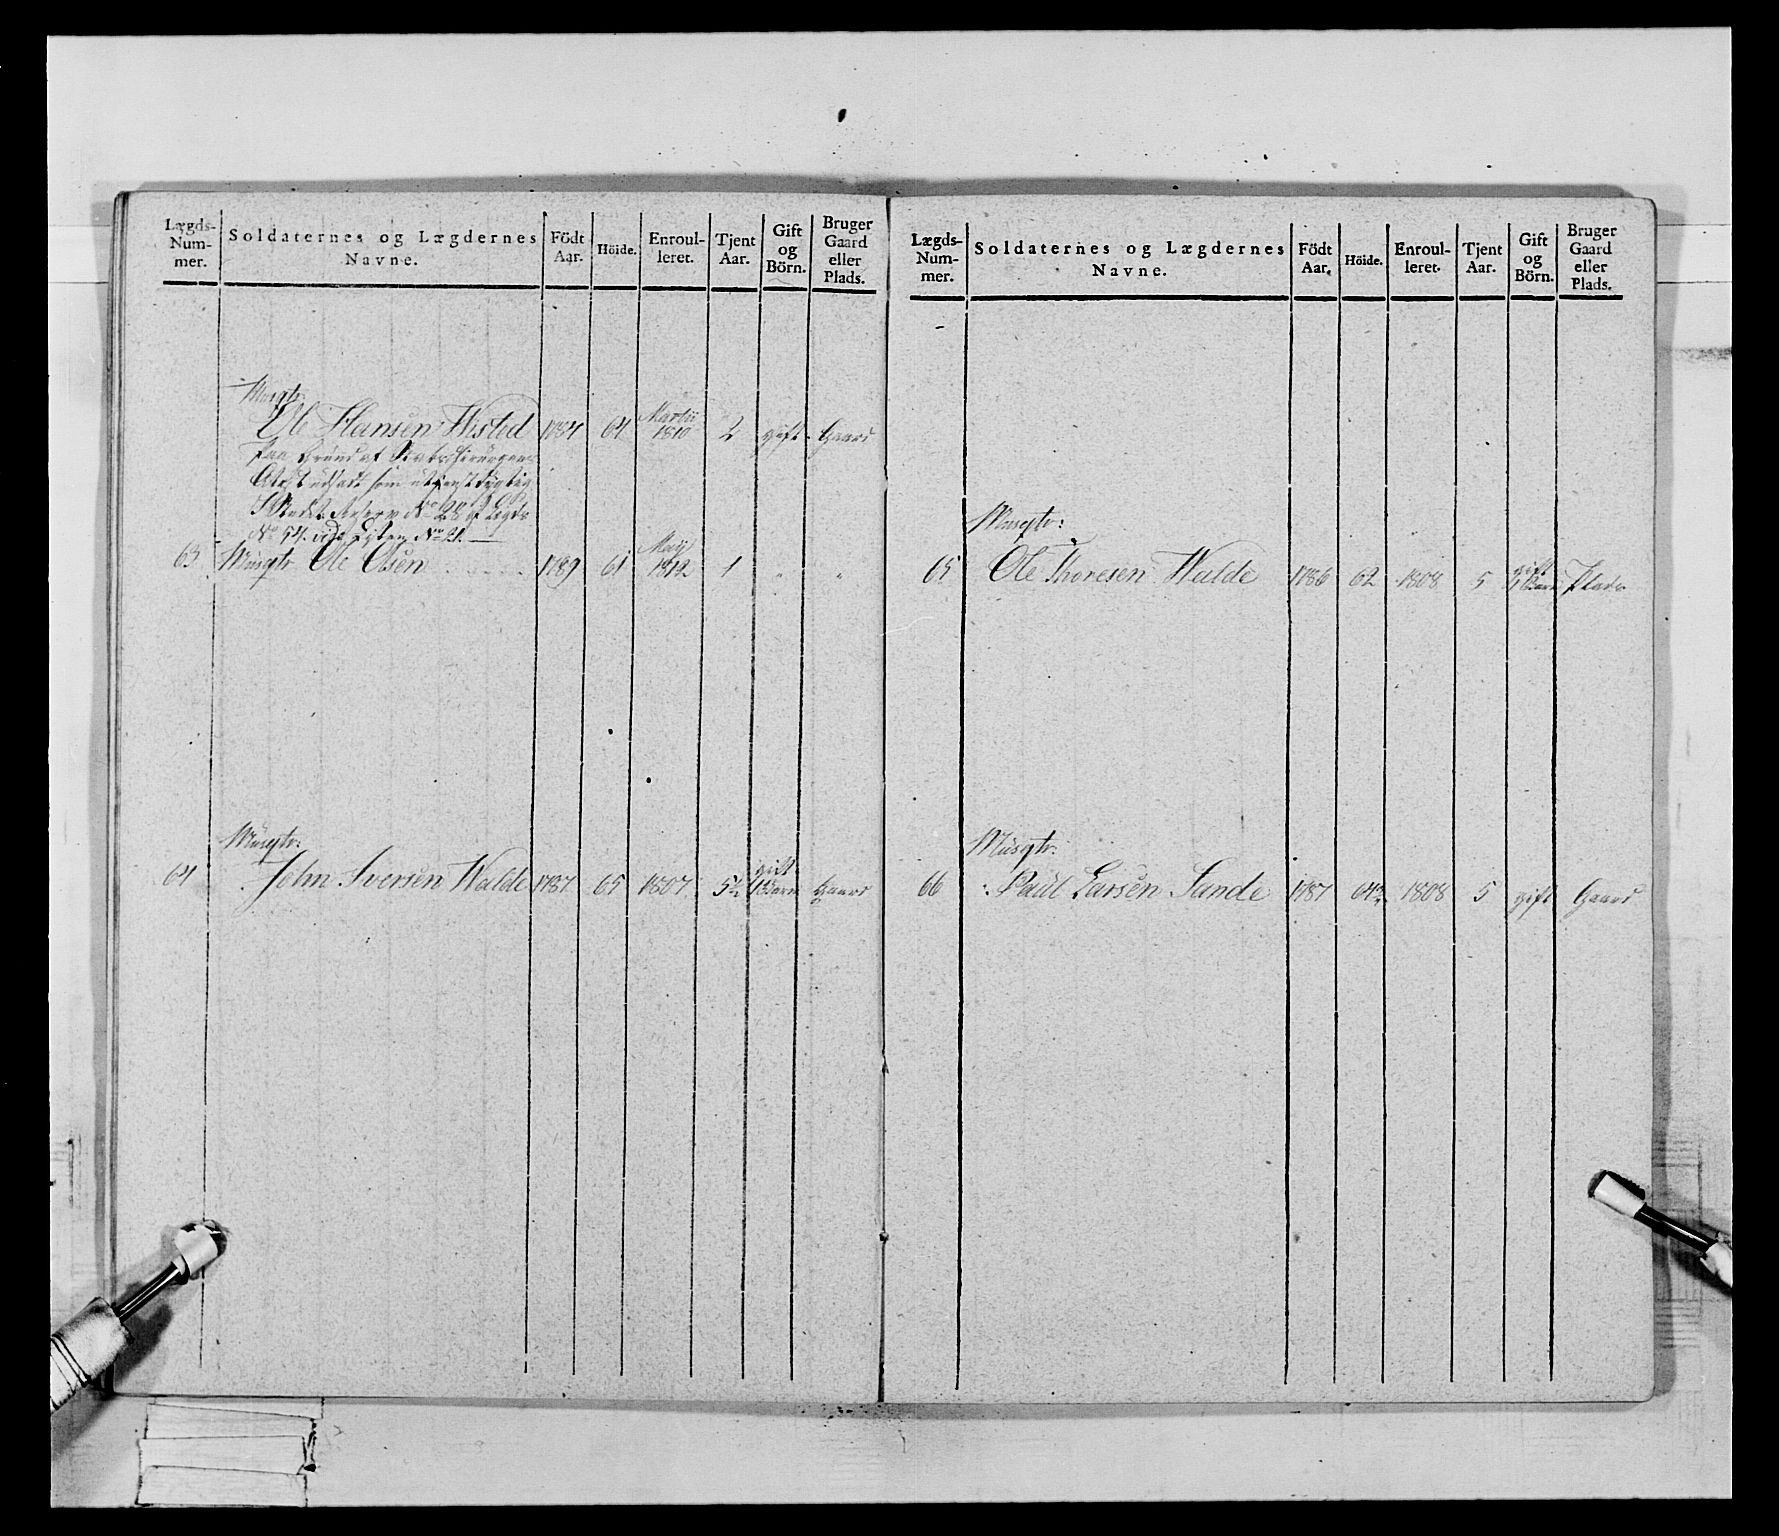 Lægds-Num-mer. Soldaternes og Lægdernes Navne. Födt Aar. Höide. Enroul-leret. Tjent Aar. Gift og Börn. Bruger Gaard eller Plads.
Musqtr:
Ole Hansen Wisted 1784 64 Martii 1810 2 gift Gaard
paa Grund af
udsadt som utienstdygtig
No 28 af Lægd
No 54.
63 Musqtr Ole Olsen 1789 61 Maij 1812 1 " "
Musqtr:
64 John Iversen Walde 1787 65 1807 5½ gift 1 Barn Gaard
Lægds-Num-mer. Soldaternes og Lægdernes Navne. Födt Aar. Höide. Enroul-leret. Tjent Aar. Gift og Börn. Bruger Gaard eller Plads.
Musqtr:
65 Ole Thoresen Walde 1786 62 1808 5 gift 1 Barn Plads
Musqtr:
66 Paul Larsen Sande 1787 64½ 1808 5 gift Gaard